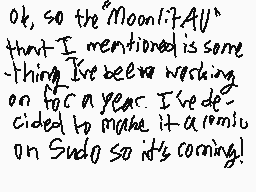 Ok, so the "Moonlit AU"
that I mentioned is some
-thing I've been working
on for a year. I've de-
cided to make it a comic
on Sudo so it's coming!